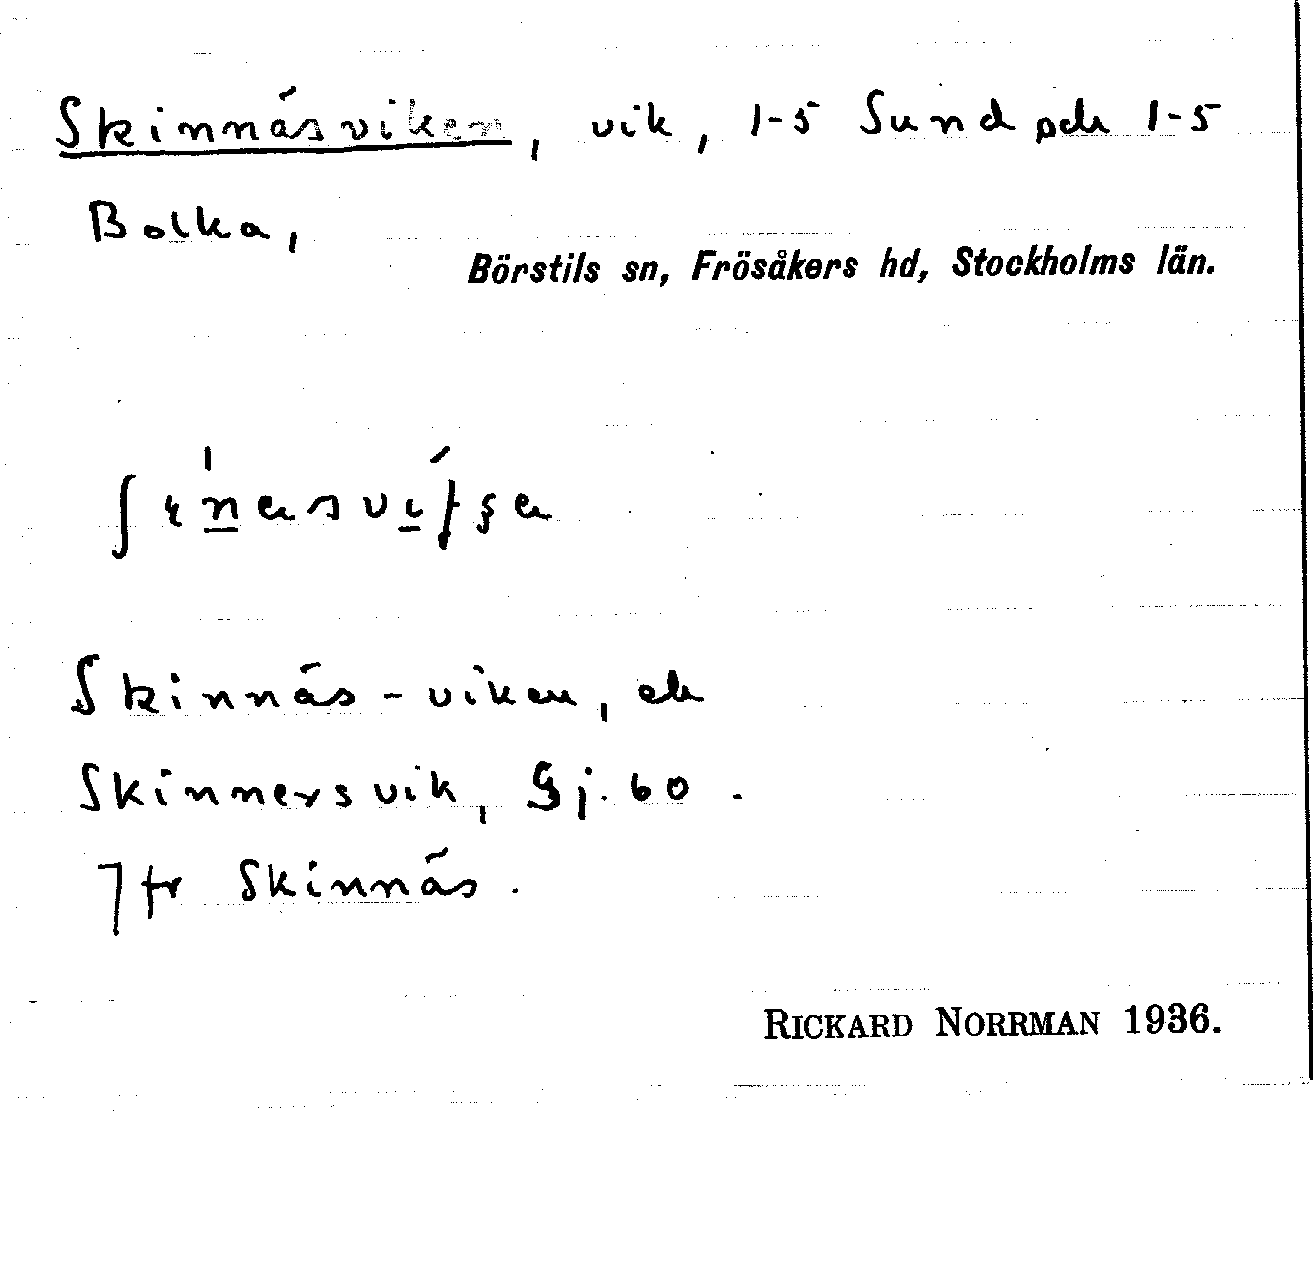 Skinnäsviken, vik, 1-5 Sund och 1-5
Bolka,
Börstils sn, Frösåkers hd, Stockholms län.
Skinnäs - viken, ek
Skinnersvik, Gj. 60.
Jfr Skinnäs.
RICKARD NORRMAN 1936.